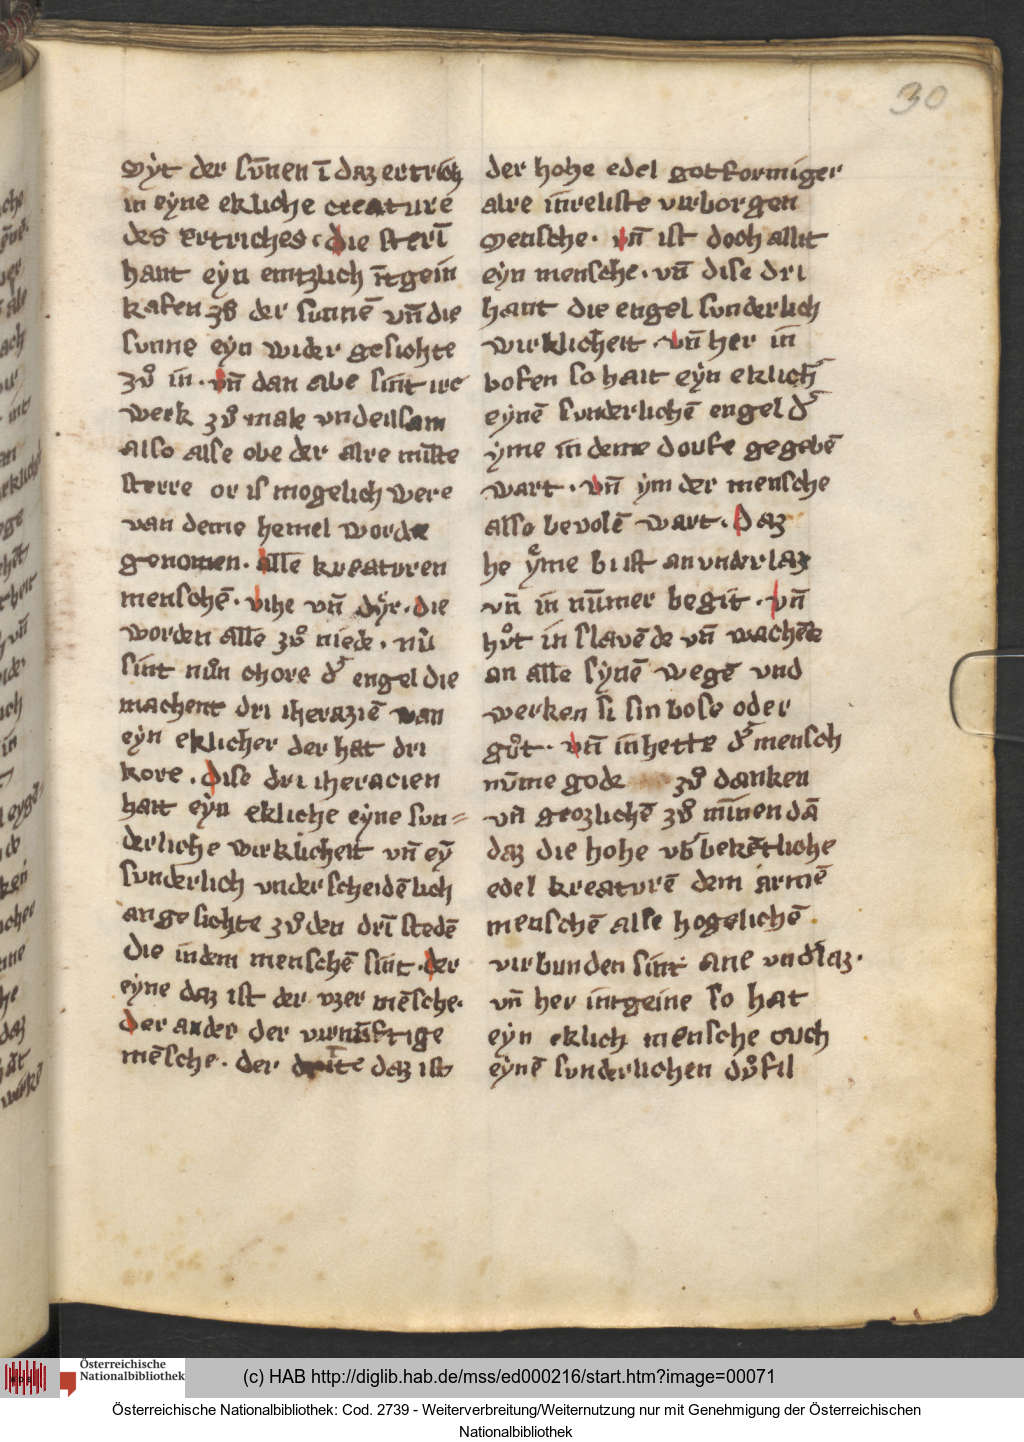 30
Mẏt der sūnen ī daz ertrich
in eẏne ekliche creature
des ertriches. die sterī
hant eẏn emtzlich n̄tgein
kafen zů der sunnē vn̄ die
sunne eẏn wider gesichte
zů in. vn̄ dan abe sint ire
werk zů male vndeilsam
also alse obe der alre minste
sterre or is mogelich were
van deme hemel worde
genomen. alle kreaturen
menschē. vihe vn̄ dẏr. die
worden alle zů niede. nů
sint nůn chore d' engel die
machent dri iheraziē van
eẏn eklicher der hat dri
kore. dise dri iheracien
hait eẏn ekliche eẏne sun=
derliche wirklicheit vn̄ eẏ̄
sunderlich vnderscheidēlich
angesichte zů den drī stedē
die in dem menschē sint. der
eẏne daz ist der vzer mēsche.
der ander der virnūftige
mēsche. der dritte daz ist
der hohe edel gotformiger
alre inreliste virborgen
mensche. vn̄ ist doch allit
eẏn mensche. vn̄ dise dri
hant die engel sunderlich
wirklicheit. vn̄ her in
bofen so hait eẏn eklich'
eẏnē sunderlichē engel d'
ẏme in deme doufe gegebē
wart. vn̄ ẏm der mensche
also bevolē wart. Daz
he ẏme bi ist an vnderlaz
vn̄ in nūmer begit. vn̄
hůt in slavēde vn̄ wachēde
an alle sẏnē wegē vnd
werken si sin bose oder
gůt. vn̄ in hette d' mensch
nūme gode zů danken
vn̄ grozlichē zů mīnen dā
daz die hohe vb'bekētliche
edel kreaturē dem armē
menschē alse hogelichē
virbunden sint ane vnd'laz.
vn̄ her intgeine so hat
eẏn eklich mensche ouch
eẏnē sunderlichen důfil
Österreichische
Nationalbibliothek
(c) HAB http://diglib.hab.de/mss/ed000216/start.htm?image=00071
Österreichische Nationalbibliothek: Cod. 2739 - Weiterverbreitung/Weiternutzung nur mit Genehmigung der Österreichischen
Nationalbibliothek